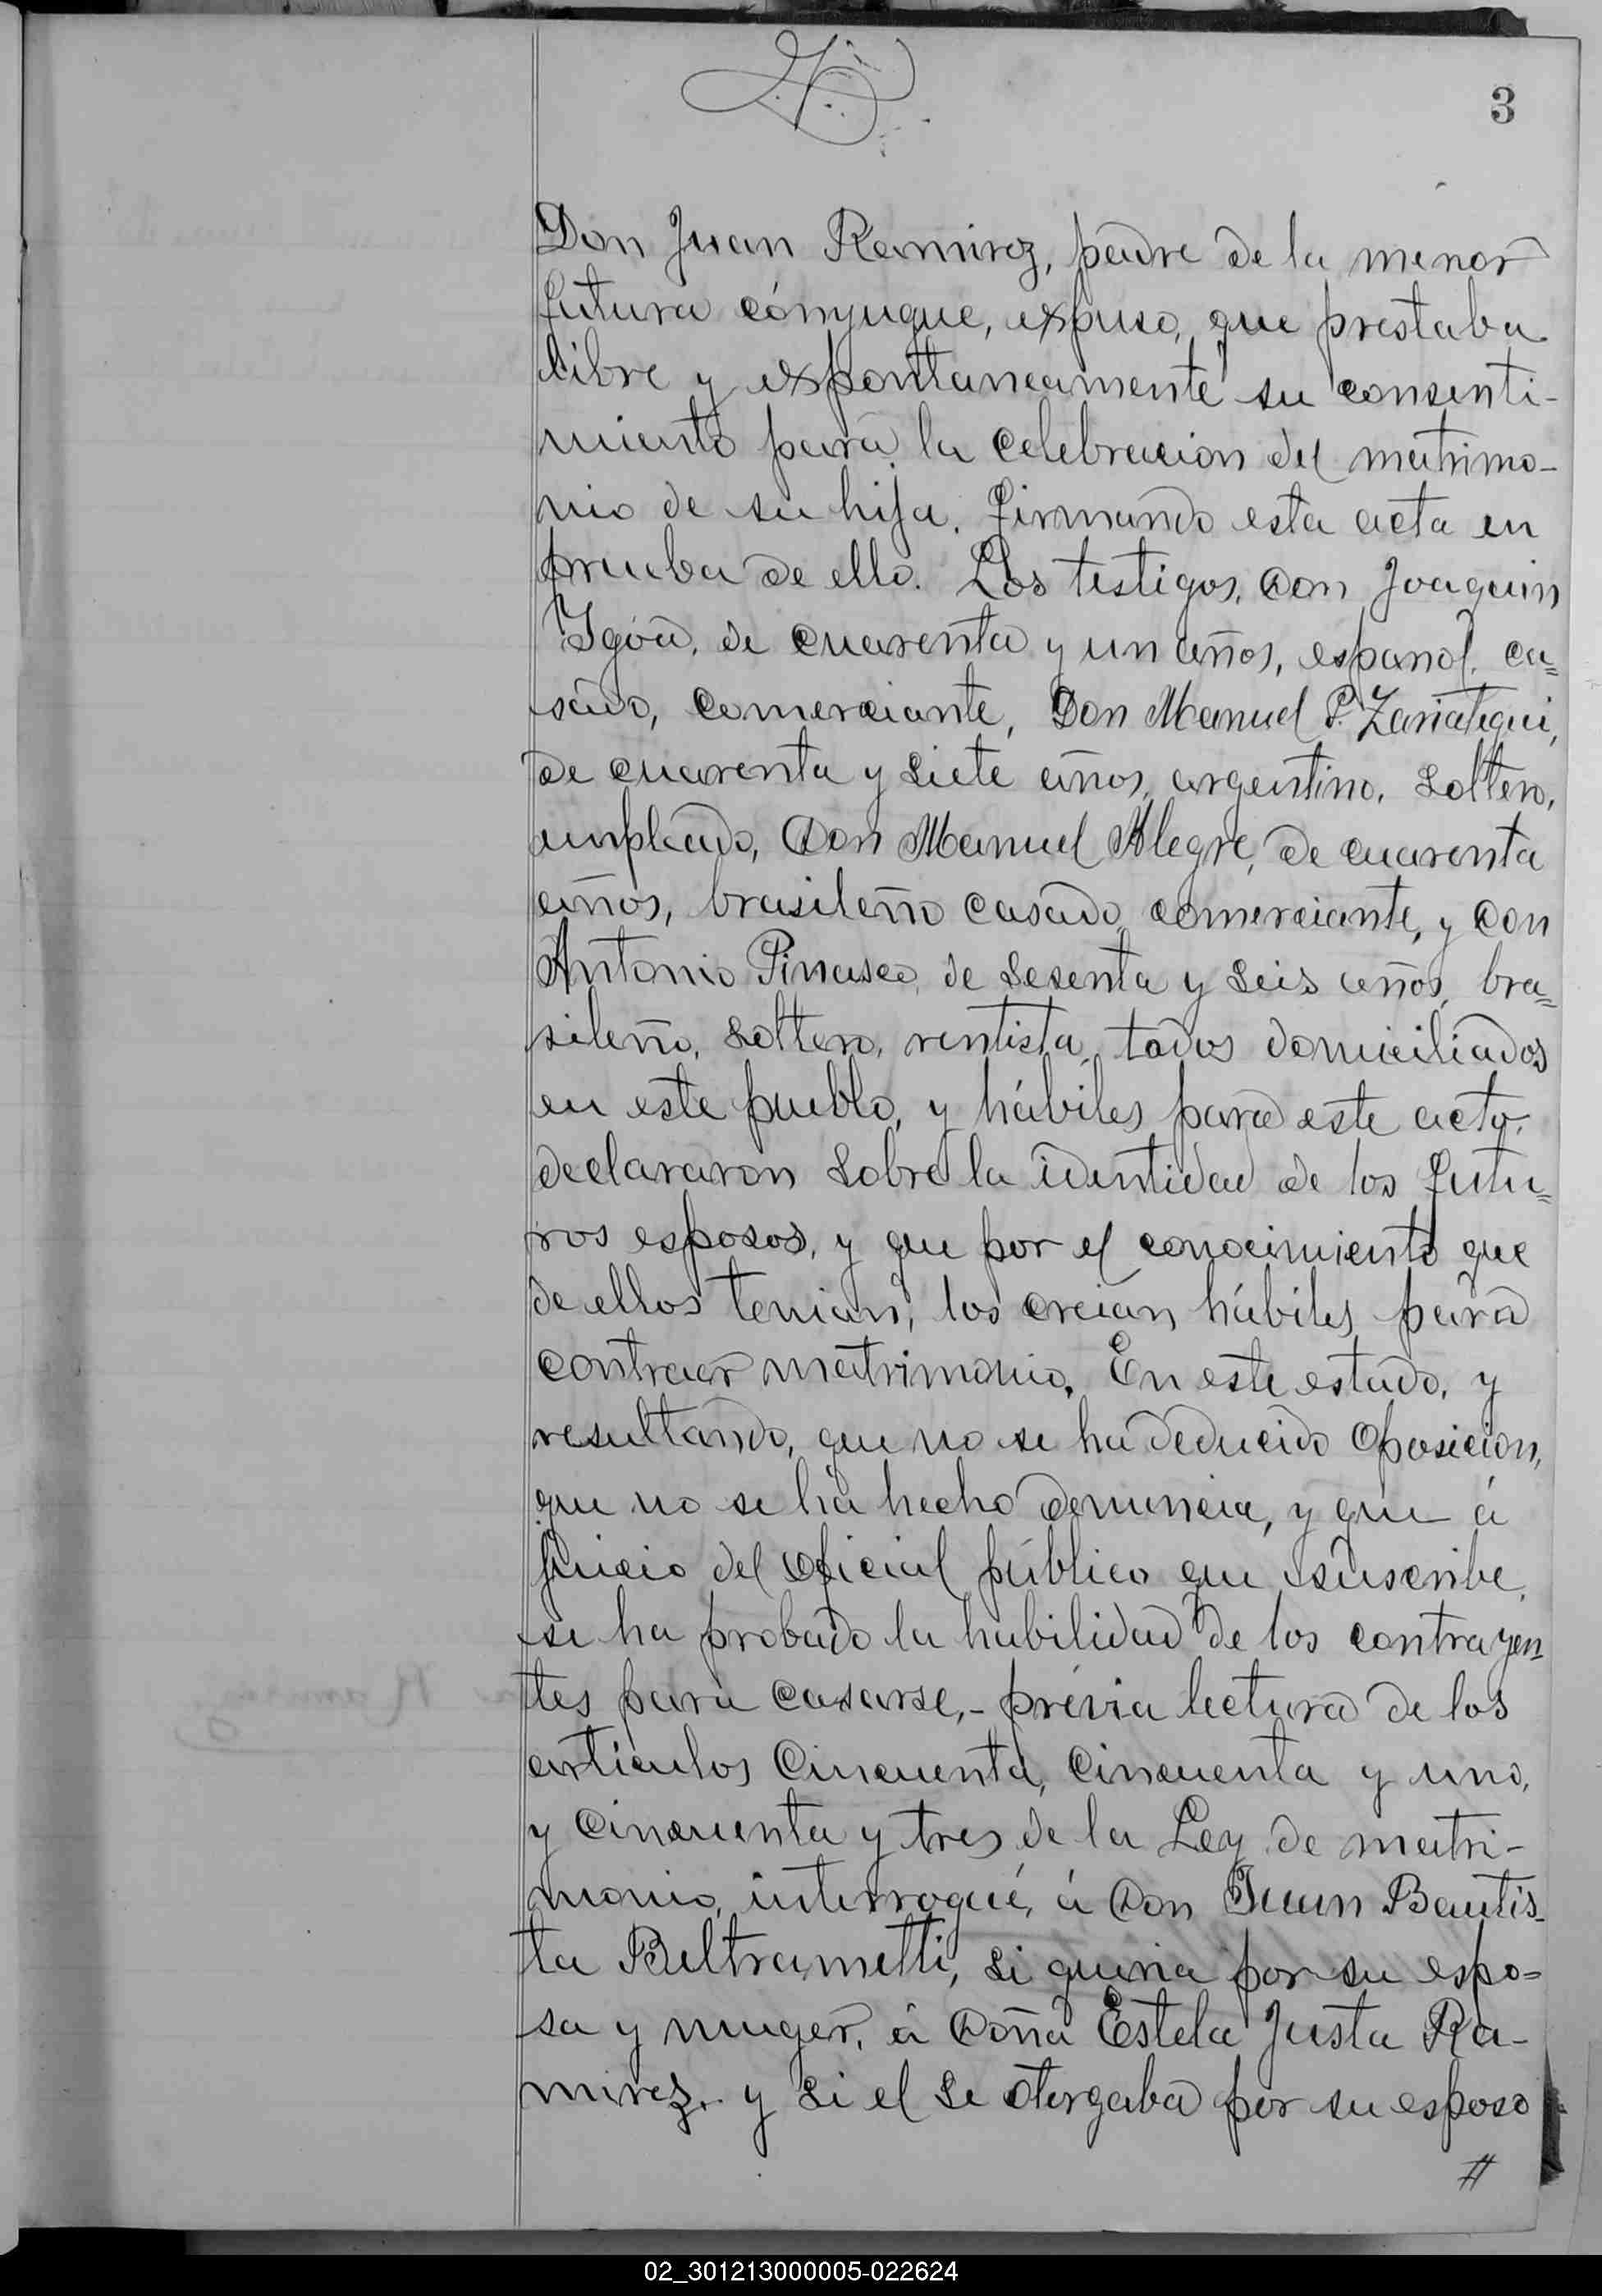 3
Don Juan Ramirez, padre de la menor
futura cónyugue, expuso, que prestaba
libre y expontaneamente su consenti-
miento para la celebracion del matrimo-
nio de su hija, firmando esta acta en
prueba de ello. Los testigos, Don Joaquin
Igóa, de cuarenta y un años, español, ca=
sado, comerciante, Don Manuel P. Zariategui,
de cuarenta y siete años, argentino, soltero,
empleado, Don Manuel Alegre, de cuarenta
años, brasileño casado, comerciante, y Don
Antonio Pinasco, de sesenta y seis años, bra=
sileño, soltero, rentista, todos domiciliados
en este pueblo, y hábiles para este acto,
declararon sobre la identidad de los futu=
ros esposos, y que por el conocimiento que
de ellos tenian, los creian hábiles para
contraer matrimonio. En este estado, y
resultando, que no se ha deducido oposicion,
que no se ha hecho denuncia, y que á
juicio del oficial público que suscribe,
se ha probado la habilidad de los contrayen=
tes para casarse,- prévia lectura de los
articulos cincuenta, cincuenta y uno,
y cincuenta y tres de la Ley de matri-
monio, interrogué, á Don Juan Bautis-
ta Beltrametti, si queria por su espo=
sa y muger, á Doña Estela Justa Ra-
mirez, y si el se otorgaba por su esposo
#
02_301213000005-022624